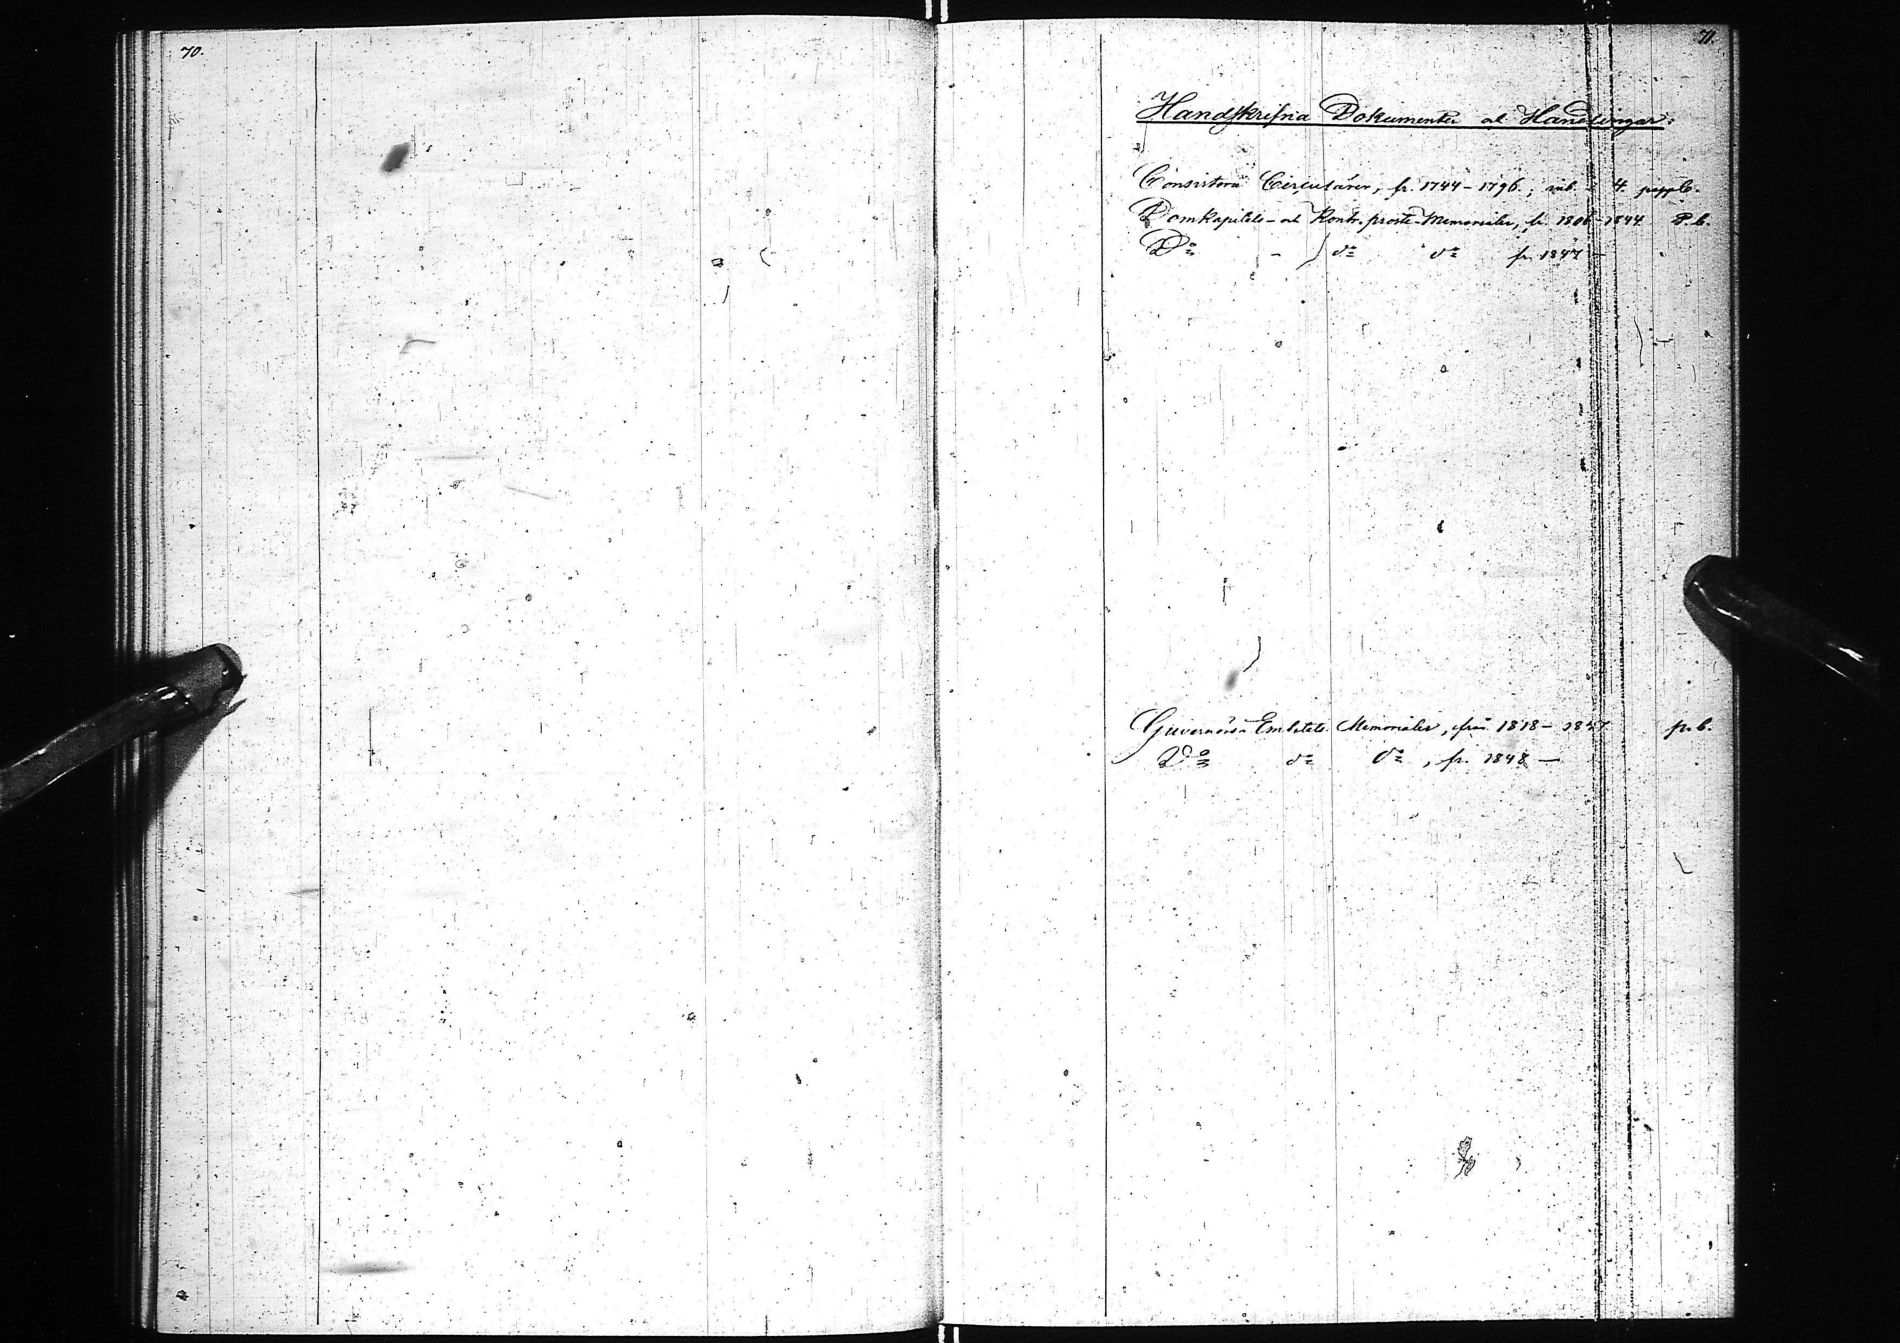 70.
71.
Handskrifna Dokumenter ok Handlingar:
Consistorii Circulärer, fr. 1744-1796., inb. i 4. pappb.
Domkapitels- ok Kontr. prosts-Memorialer, fr. 1806-1844 P.b.
Do - do do fr. 1847 -
Guvernörs Embetets Memorialer, från 1818- 1847 p.b.
Do do do, fr. 1848 —